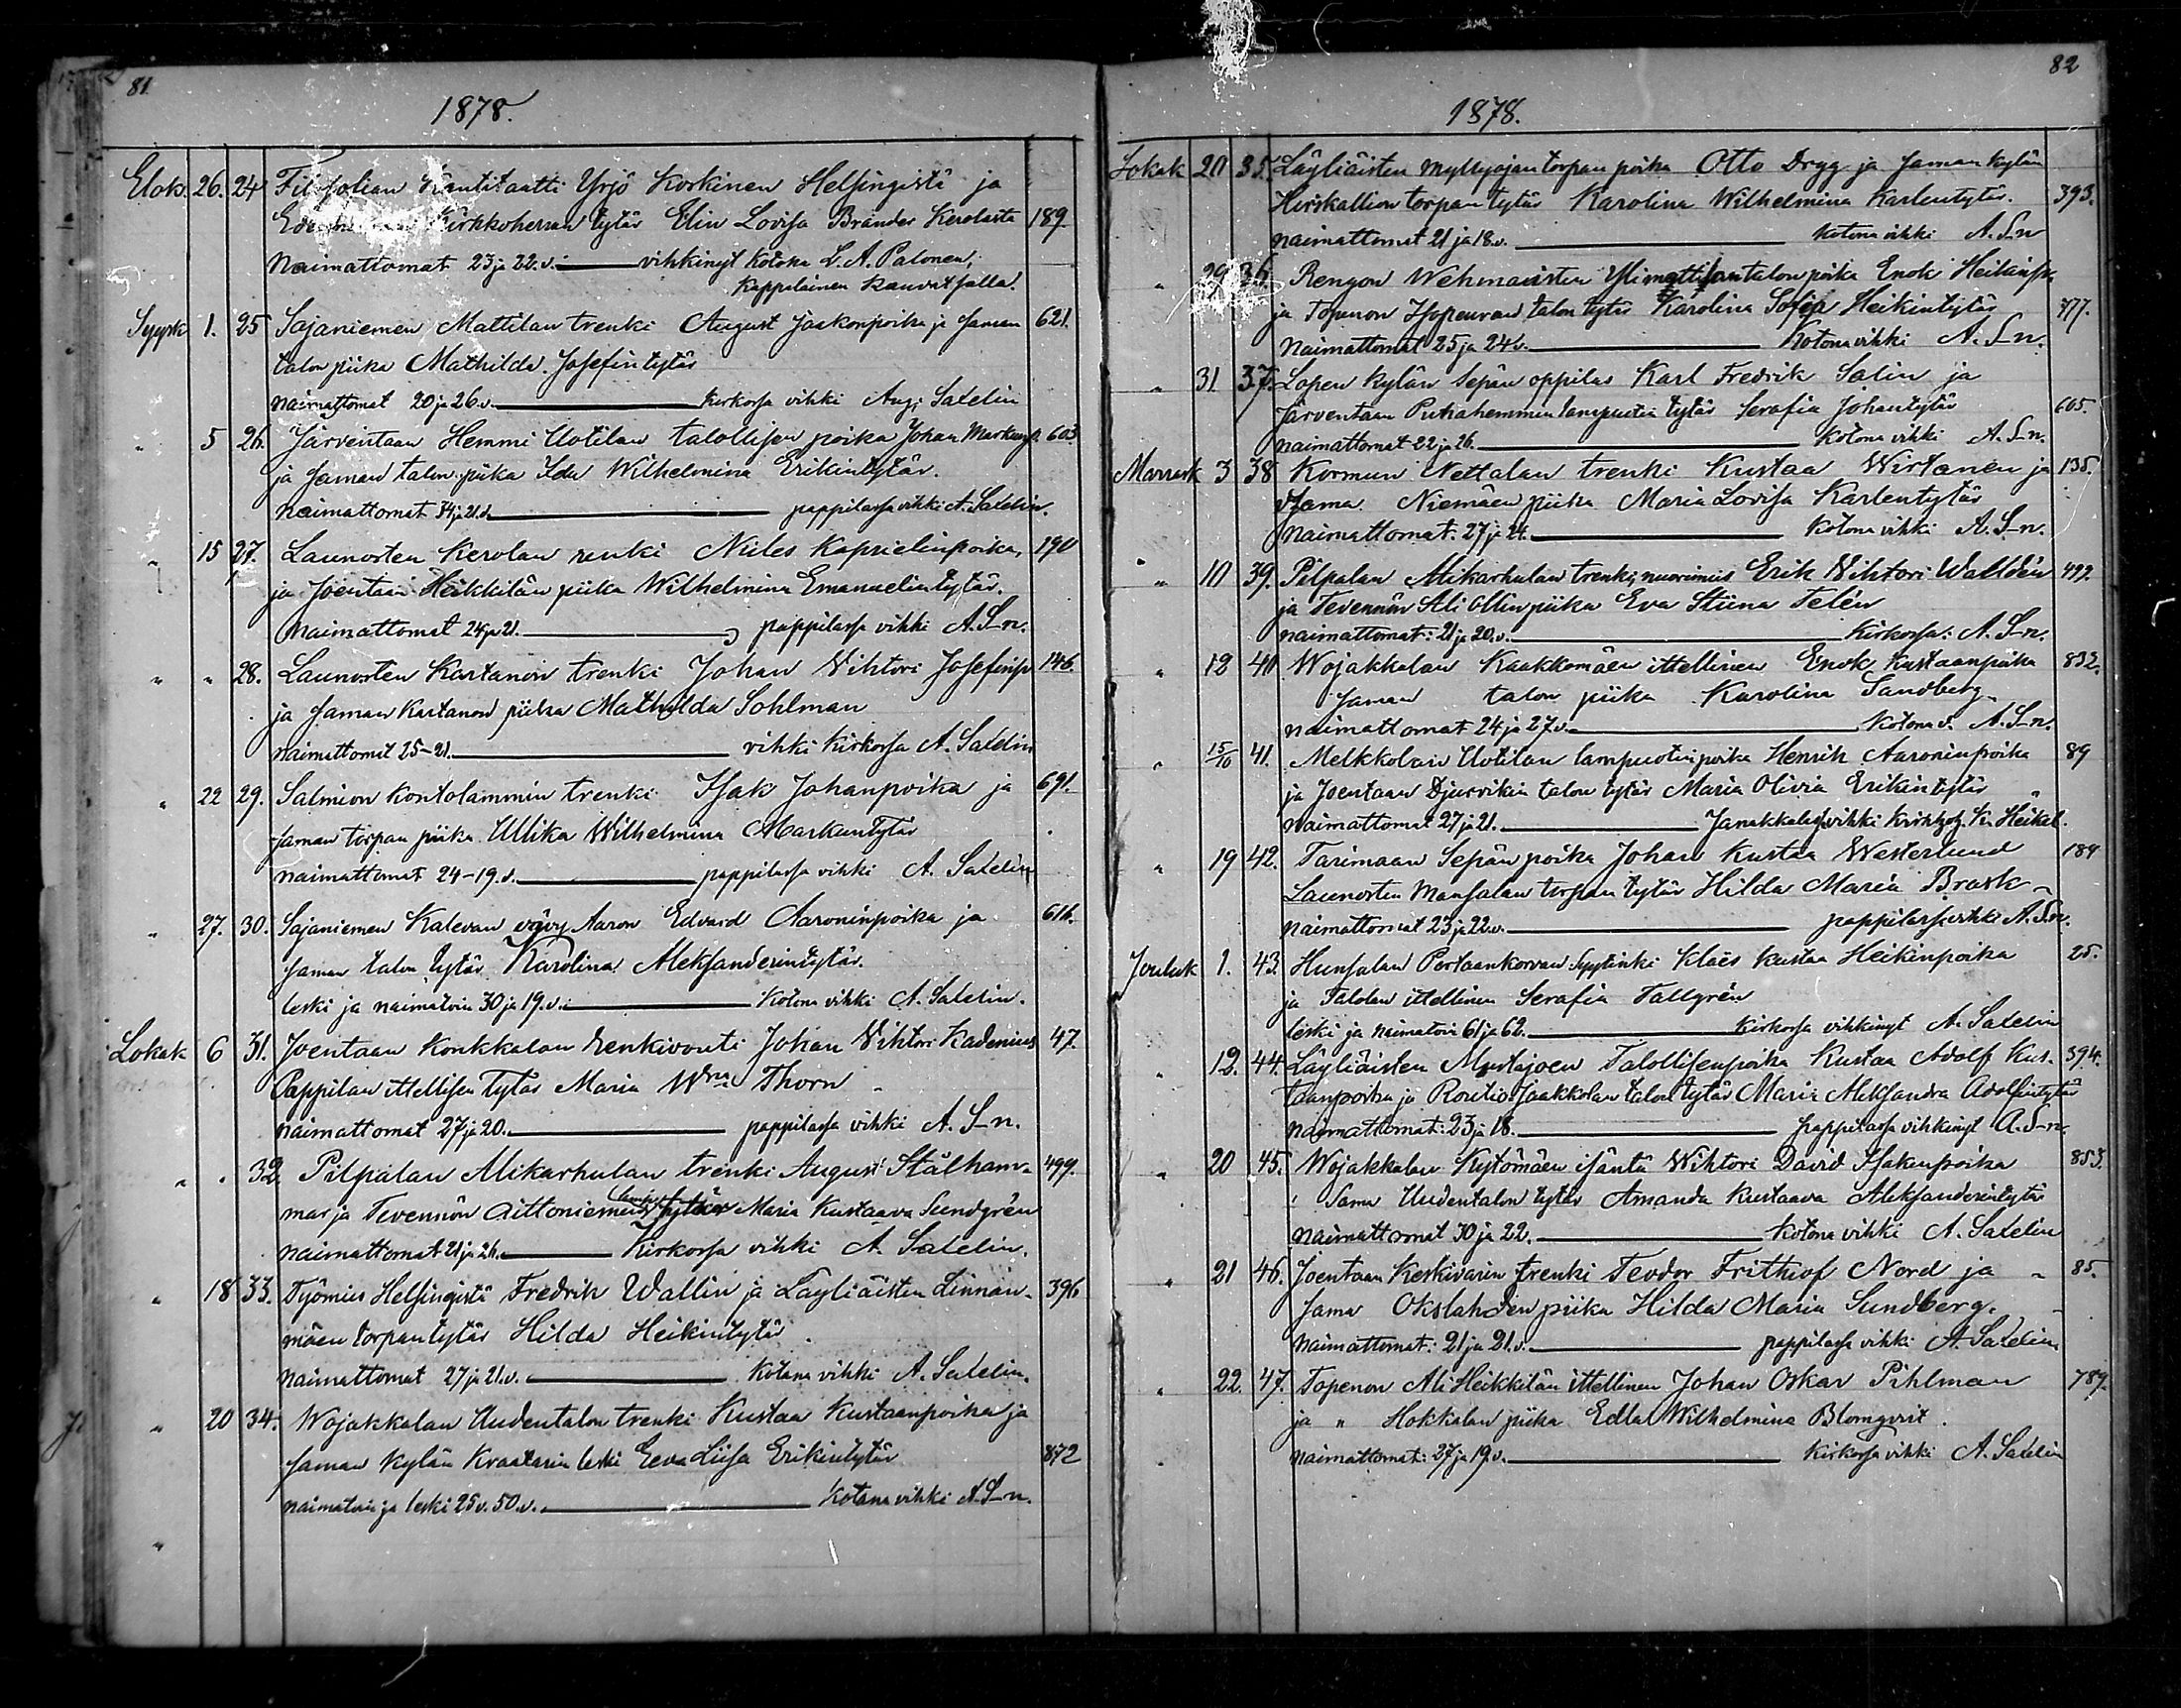 81
1878.
Elok. 26. 24 Filosofian Kantitaatti Yrjö Koskinen Helsingistä ja
Kirkkoherran tytär Elin Lovisa Brander Kerolasta 189.
Naimattomat 23 ja 22. v. vihkinyt Kotona L. A. Palonen,
Kappalainen Rauvatsalla.
Syysk 1. 25 Sajaniemen Mattilan trenki August Jaakonpoika ja saman 621.
talon piika Mathilda Josefintytär
naimattomat 20 ja 26. v. Kirkossa vihki Aug. Saxelin
" 5 26. Järventaan Hemmi Uotilan talollisen poika Johan Markunp. 603
ja saman talon piika Ida Wilhelmina Erikintytär.
Naimattomat 34 ja 21. v. pappilassa vihki A. Saxelin.
" 15 27. Launosten Kerolan renki Niiles Kaprielinpoika, 190
ja Joentaan Heikkilän piika Wilhelmina Emanuelintytär.
Naimattomat 24 ja 21. pappilassa vihki A. S-n.
" " 28. Launosten Kartanon trenki Johan Vihtori Josefinp 146.
ja saman Kartanon piika Mathilda Sohlman
naimattomat 25-21. vihki Kirkossa A. Saxelin
" 22 29. Salmion Kontolammin trenki Isak Johanpoika ja 691.
saman torpan piika Ullika Wilhelmina Markuntytär
naimattomat 24-19. v. pappilassa vihki A. Saxelin
" 27. 30. Sajaniemen Kalevan vävy Aaron Edvard Aaroninpoika ja 616.
saman talon tytär Karolina Aleksanderintytär.
leski ja naimatoin 30 ja 19. v. Kotona vihki A. Saxelin.
Lokak 6 31. Joentaan Konkkalan renkivouti Johan Vihtori Kadenius 47.
Pappilan ittellisen tytär Maria Wna Thorn
naimattomat 27 ja 20. pappilassa vihki A. S-n.
" " 32. Pilpalan Alikarhulan trenki August Stålham- 499.
mar ja Tevennön Aittoniemen lamp. tytär Maria Kustaava Sundgrén
naimattomat 21 ja 26. Kirkossa vihki A. Saxelin.
" 18 33. Työmies Helsingistä Fredrik Wallin ja Läyliäisten Linnan- 396
mäen torpan tytär Hilda Heikintytär
naimattomat 27 ja 21. v. Kotona vihki A. Saxelin.
" 20 34. Wojakkalan Uudentalon trenki Kustaa Kustaanpoika ja
saman kylän Kraatarin leski Eeva Liisa Erikintytär 872
naimatoin ja leski 25 v. 50. v. Kotona vihki A. S-n.
"
82
1878.
Lokak 20 35. Läyliäisten Myllyojan torpan poika Otto Drygg ja saman kylän
Hirskallion torpan tytär Karolina Wilhelmina Karlentytär. 393.
naimattomat 21 ja 18. v. Kotona vihki A. S-n
" 29 36. Rengon Wehmaisten Ylimattilan talon poika Enok Heikinp.
ja Topenon talon tytär Karolina Sofia Heikintytär 777.
Naimattomat 25 ja 24 v. Kotona vihki A. S-n.
" 31 37. Lopen kylän Sepän oppilas Karl Fredrik Salin ja
Järventaan lampuotin tytär Serafia Johantytär 605.
naimattomat 22 ja 26. Kotona vihki A. S-n.
Marrask 3 38 Kormun Nettalan trenki Kustaa Wirtanen ja 135.
Sama Niemäen piika Maria Lovisa Karlentytär
Naimattomat: 27 ja 24. Kotona vihki A. S-n.
" 10 39. Pilpalan Alikarhulan trenki, nuorimies Erik Vihtori Walldén 499
ja Tevennön Ali Ollin piika Eva Stiina Telén
naimattomat: 21 ja 20. v. Kirkossa: A. S-n.
" 12 40 Wojakkalan Kaakkomäen ittellinen Enok Kustaanpoika 832.
saman talon piika Karolina Sandberg
naimattomat 24 ja 27. v. Kotona v. A. S-n.
" 15/10 41. Melkkolan Uotilan lampuotin poika Henrik Aaroninpoika 89
ja Joentaan talon tytär Maria Olivia Erikintytär "
naimattomat 27 ja 21. Janakkalassa vihki Kirkh. K. Heikel.
" 19 42. Tarimaan Sepän poika Johan Kustaa Westerlund 184
Launosten Mansalan torpan tytär Hilda Maria Brask
naimattomat 23 ja 22. v. pappilassa vihki A. S-n.
Jouluk 1. 43. Hunsalan Pertaankorvan Syytinki Klaës Kustaa Heikinpoika 25.
ja Talolan ittellinen Serafia Tallgrén
leski ja naimatoin 61 ja 62. Kirkossa vihkinyt A. Saxelin
" 12. 44. Läyliäisten Mustajoen Talollisenpoika Kustaa Adolf Kus- 394.
taanpoika ja Routio Jaakkolan talon tytär Maria Aleksandra Adolfintytär
naimattomat: 23 ja 18. pappilassa vihkinyt A. S-n.
" 20 45. Wojakkalan Kytömäen isäntä Wihtori David Isakinpoika 853.
Sama Uudentalon tytär Amanda Kustaava Aleksanderintytär
naimattomat 30 ja 22. Kotona vihki A. Saxelin
" 21 46. Joentaan Keskivarin trenki Teodor Frithiof Nord ja 85.
Sama Okslahden piika Hilda Maria Sundberg.
Naimattomat: 21 ja 21. v. pappilassa vihki A. Saxelin
" 22. 47. Topenon Ali Heikkilän ittellinen Johan Oskar Pihlman 789.
ja " Hokkalan piika Edla Wilhelmina Blomqvist.
naimattomat: 27 ja 19. v. Kirkossa vihki A. Saxelin